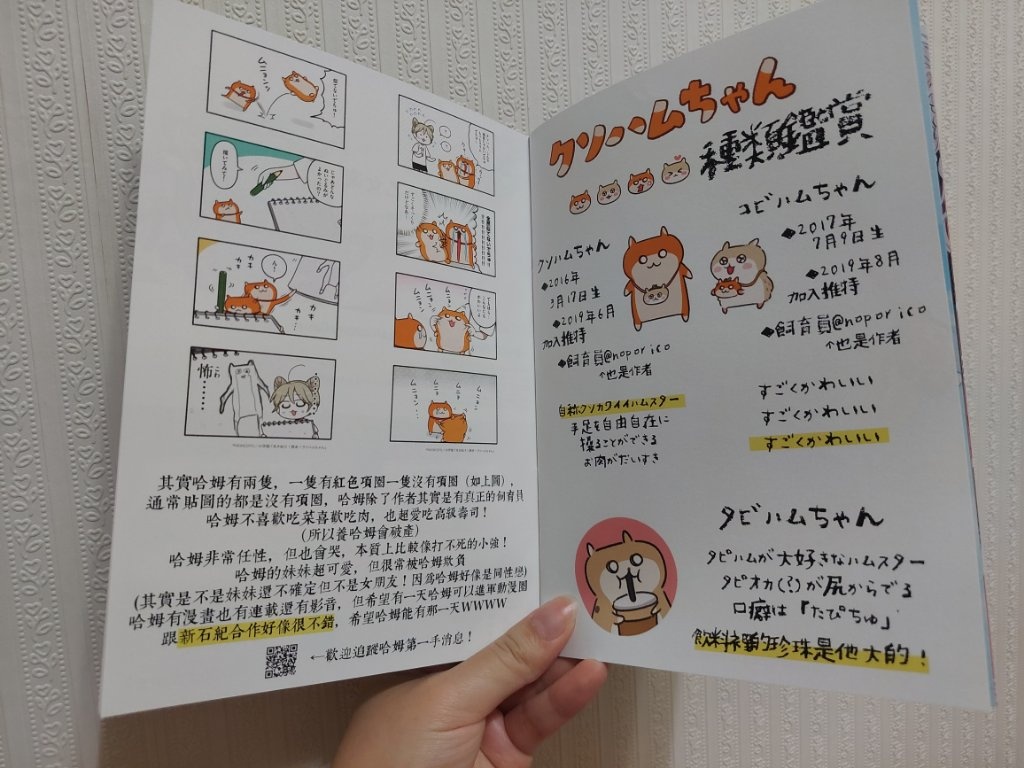 ムニョンッ
描いてみて!
カキ
カキ
カキ…
怖…
こわ
ムニョン
ムニョン
ムニョン
其實哈姆有兩隻，一隻有紅色項圈一隻沒有項圈（如上圖），
通常貼圖的都是沒有項圈，哈姆除了作者其實是有真正的飼育員
哈姆不喜歡吃菜喜歡吃肉，也超愛吃高級壽司！
(所以養哈姆會破產)
哈姆非常任性，但也會哭，本質上比較像打不死的小強！
哈姆的妹妹超可愛，但很常被哈姆欺負
(其實是不是妹妹還不確定但不是女朋友！因為哈姆好像是同性戀)
哈姆有漫畫也有連載還有影音，但希望有一天哈姆可以進軍動漫圈
跟新石紀合作好像很不錯，希望哈姆能有那一天WWWW
←歡迎追蹤哈姆第一手消息！
クソハムちゃん
種類鑑賞
クソハムちゃん
◆2016年
3月17日生
◆2019年6月
加入推特
◆飼育員@noporico
↑也是作者
自称クソカワイイハムスター
手足を自由自在に
操ることができる
お肉がだいすき
コビハムちゃん
◆2017年
7月9日生
◆2019年8月
加入推特
◆飼育員@noporico
↑也是作者
すごくかわいい
すごくかわいい
すごくかわいい
タピハムちゃん
タピハムが大好きなハムスター
タピオカ(?)が尻からでる
口癖は「たぴちゅ」
飲料裡的珍珠是他大的！